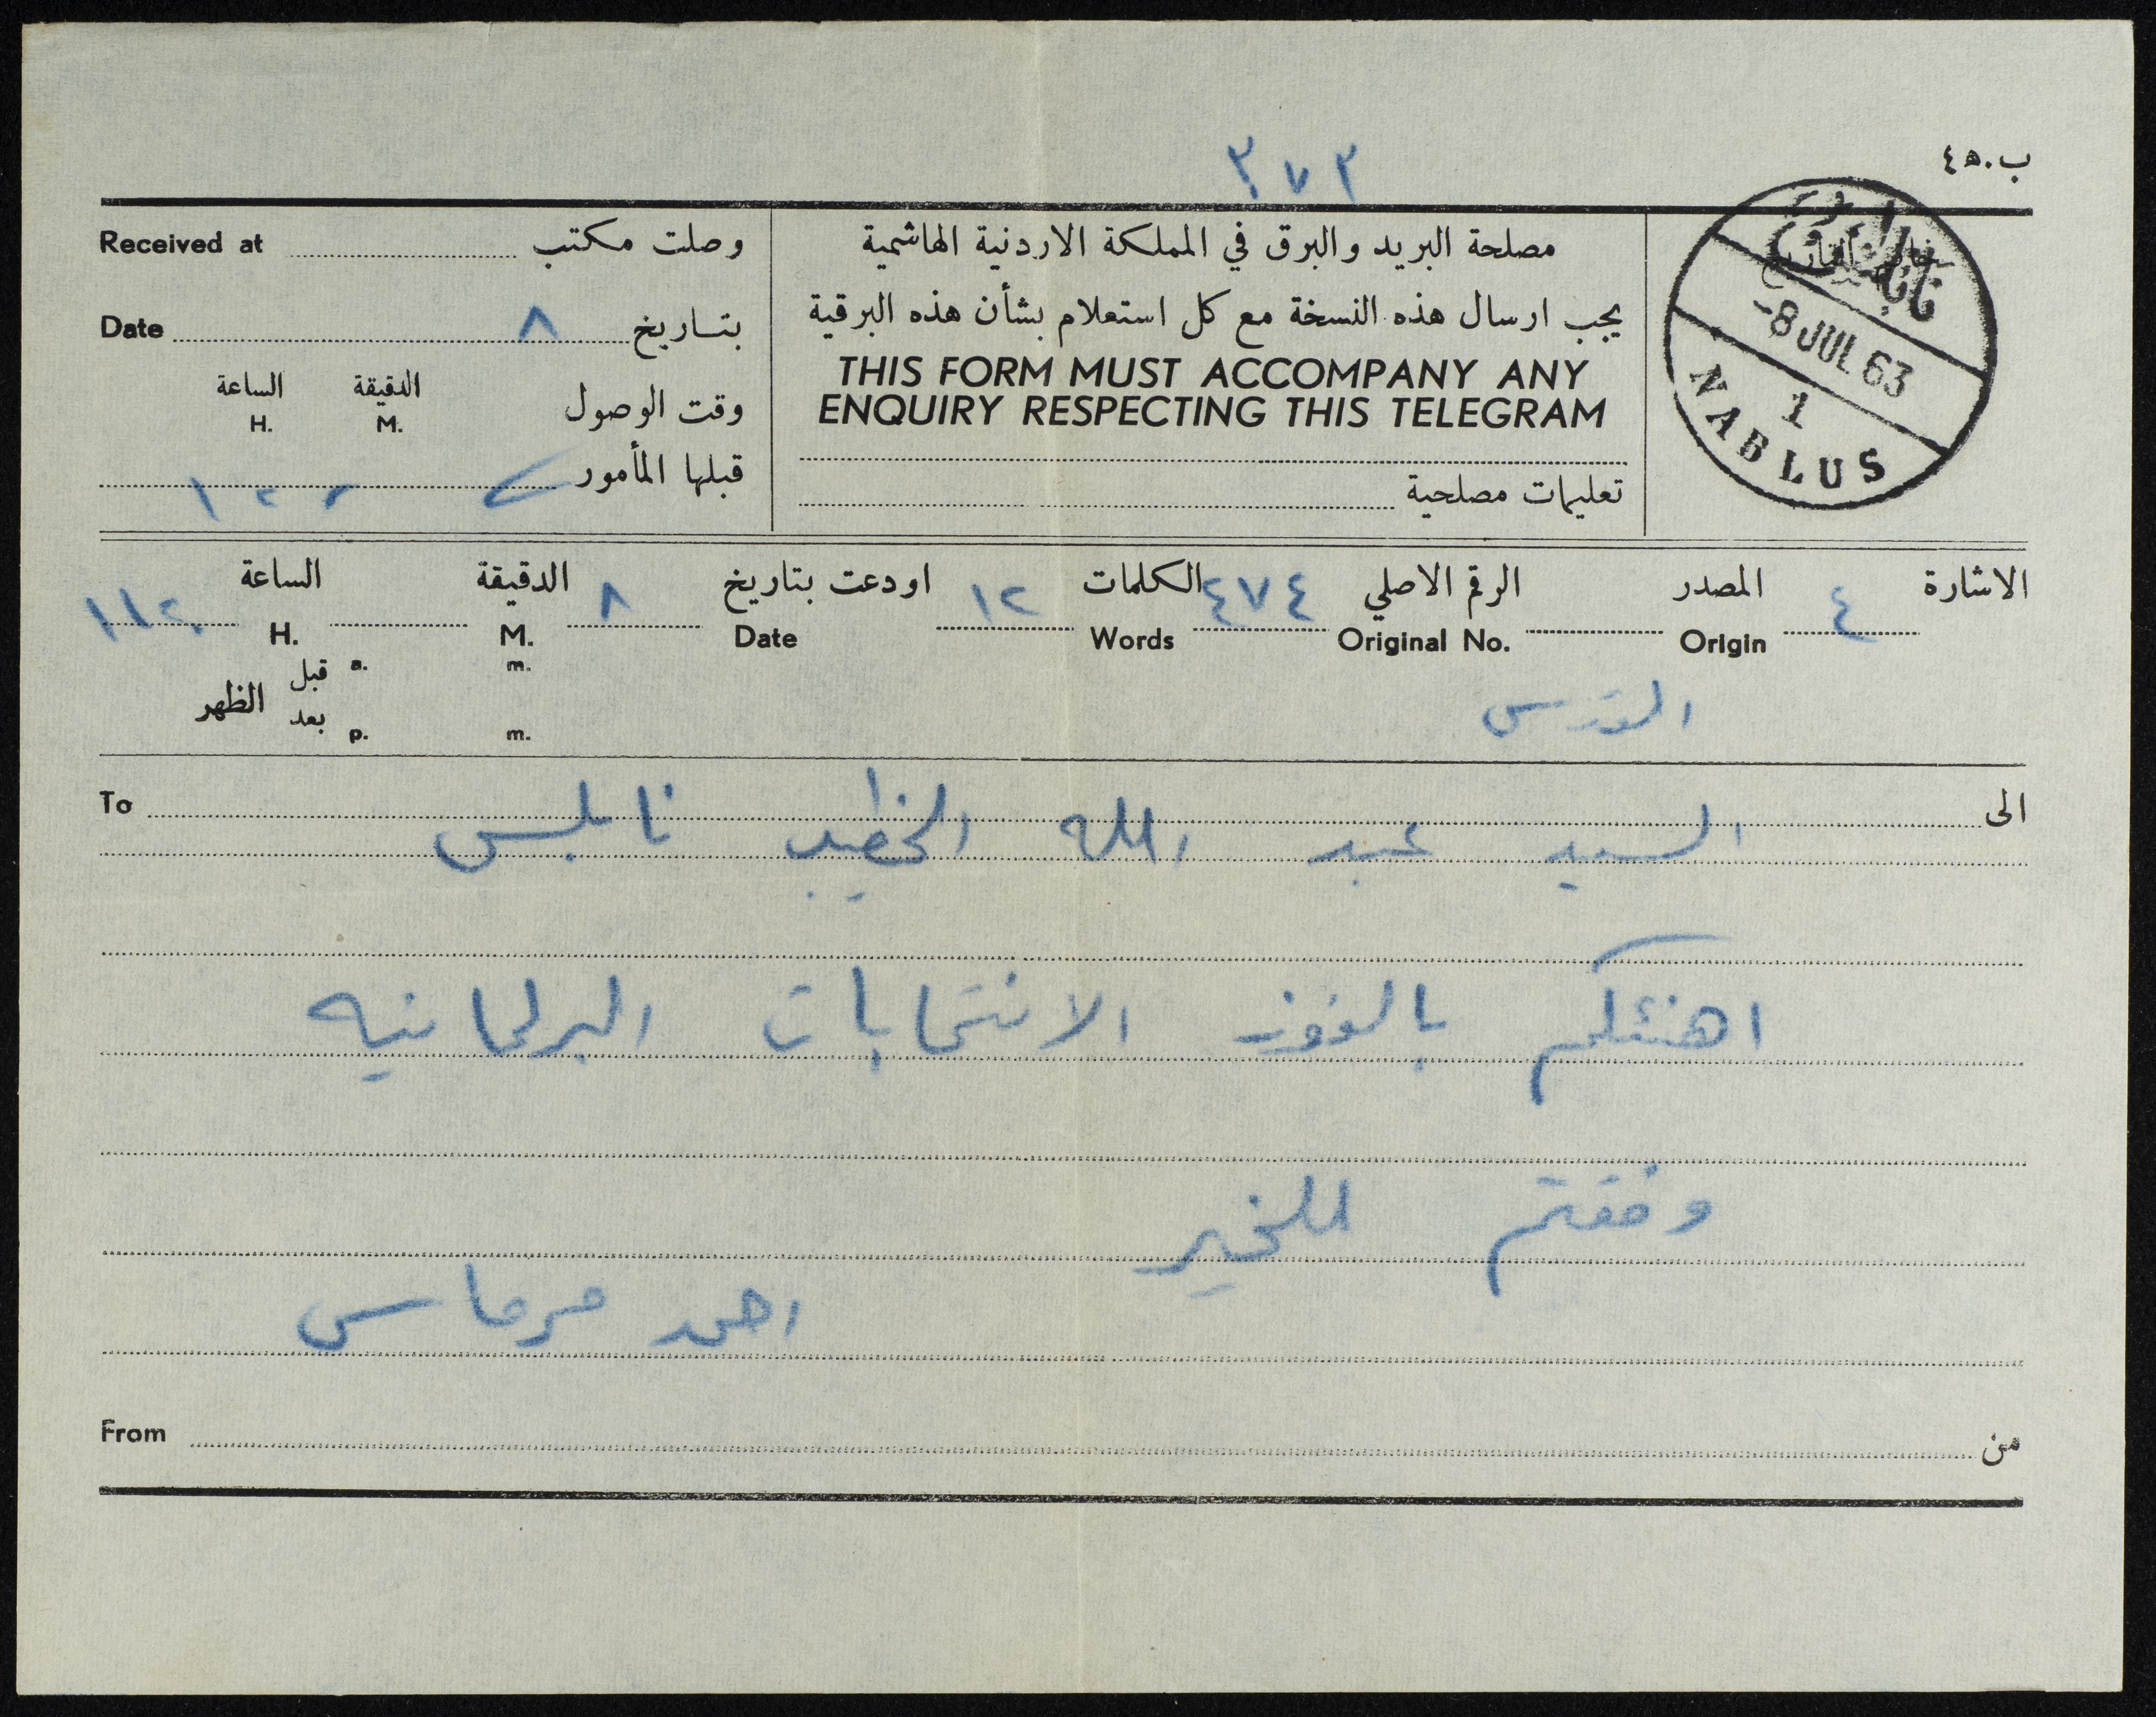 ٣٧٢
ب.ه٤
Received at وصلت مكتب
Date بتاريخ ٨
الساعة الدقيقة
H. M. وقت الوصول
قبلها المأمور
مصلحة البريد والبرق في المملكة الاردنية الهاشمية
يجب ارسال هذه النسخة مع كل استعلام بشأن هذه البرقية
THIS FORM MUST ACCOMPANY ANY
ENQUIRY RESPECTING THIS TELEGRAM
تعليمات مصلحية
نابلس
-8 JUL 63
1
NABLUS
الاشارة ٤ المصدر الرقم الاصلي ٤٧٤ الكلمات ١٢ اودعت بتاريخ ٨ الدقيقة الساعة ١١٢٠
Origin Original No. Words Date M. H.
قبل a. m.
الظهر
بعد p. m.
القدس
To الى
السيد عبد الله الخطيب نابلس
اهنئكم بالفوز الانتخابات البرلمانيه
وفقتم للخير
احمد
From من